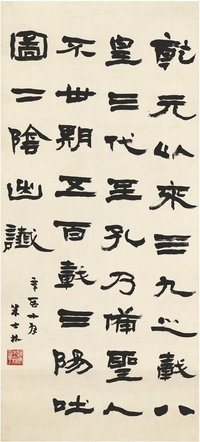 乾元以來三九之載八
皇三代至孔乃備聖人
不世期五百載三陽吐
圖二陰出讖
辛酉十月